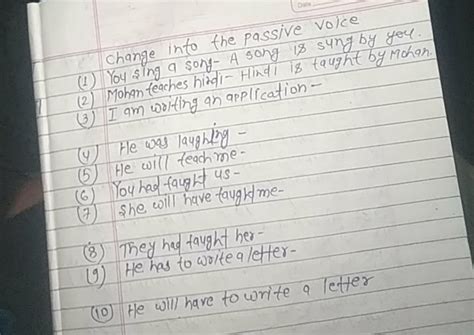 Date
Change into the passive voice
(1) You sing a song- A song is sung by you.
(2) Mohan teaches hindi- Hindi is taught by Mohan.
(3) I am writing an application-
(4) He was laughing-
(5) He will teach me-
(6) You had taught us-
(7) She will have taught me-
(8) They had taught her-
(9) He has to write a letter-
(10) He will have to write a letter